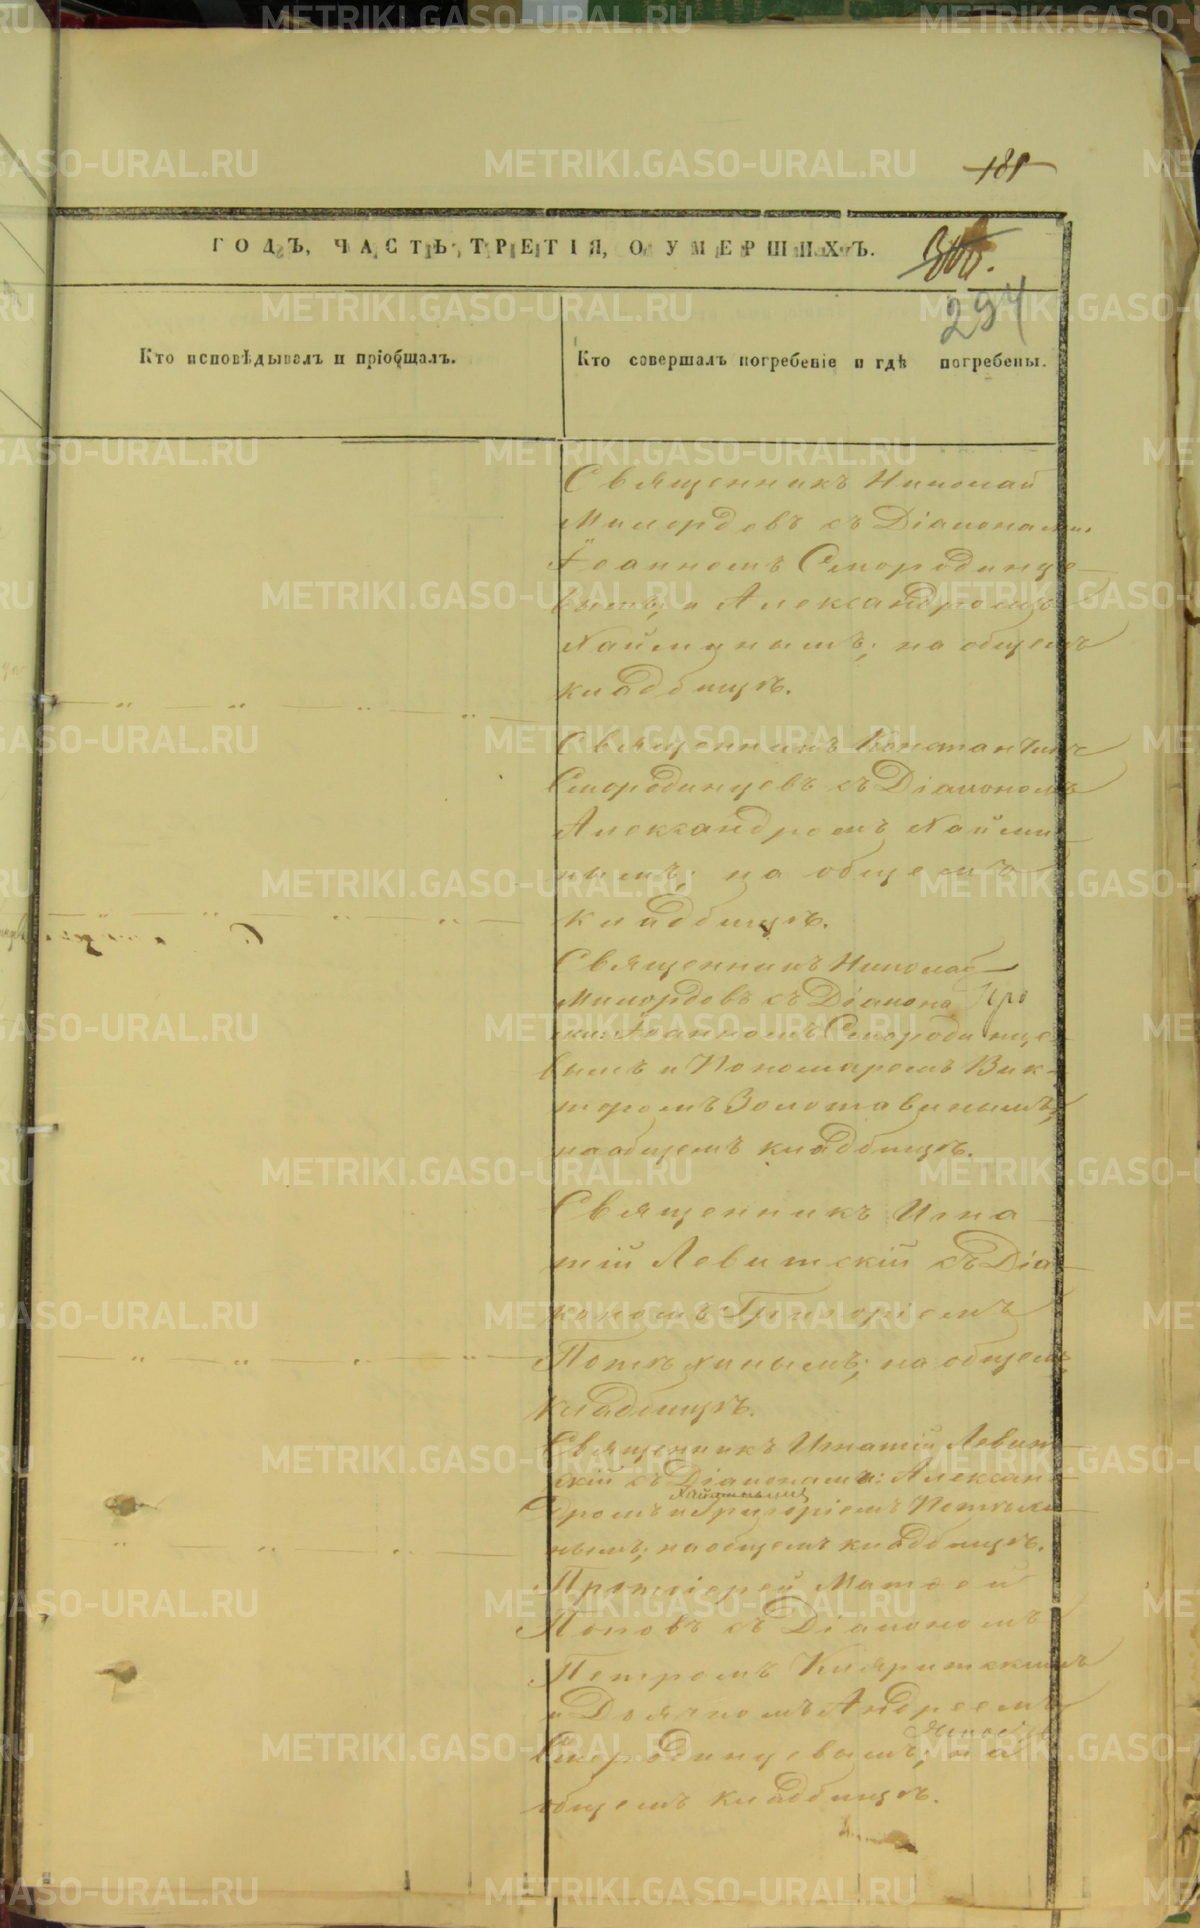 181
ГОДЪ, ЧАСТЬ ТРЕТІЯ, О УМЕРШИХЪ.
294
Кто исповѣдывалъ и пріобщалъ.
Кто совершалъ погребеніе и гдѣ погребены.
Священникъ Николай
Милордовъ съ Діаконами:
Іоанномъ Смородинце-
вымъ, и Александромъ
Наймушинымъ; на общемъ
кладбищѣ.
Священникъ Константинъ
Смородинцевъ съ Діакономъ
Александромъ
нымъ; на общемъ
кладбищѣ.
Священникъ Николай
Милордовъ съ Діакона
ми: Іоанномъ Смородинце-
вымъ и Пономаремъ Вик-
торомъ Золотавинымъ;
на общемъ кладбищѣ.
Священникъ Игна-
тій Левитскій съ Діа-
кономъ Григоріемъ
Потѣхинымъ; на общемъ
кладбищѣ.
Священникъ Игнатій Левит-
скій съ Діаконами: Алексан-
дромъ и Григоріемъ Потѣхи-
нымъ; на общемъ кладбищѣ.
Протоіерей Матѳей
Поповъ съ Діакономъ
Петромъ
и Дьячкомъ Андреемъ
Смородинцевымъ; на
общемъ кладбищѣ.
METRIKI.GASO-URAL.RU